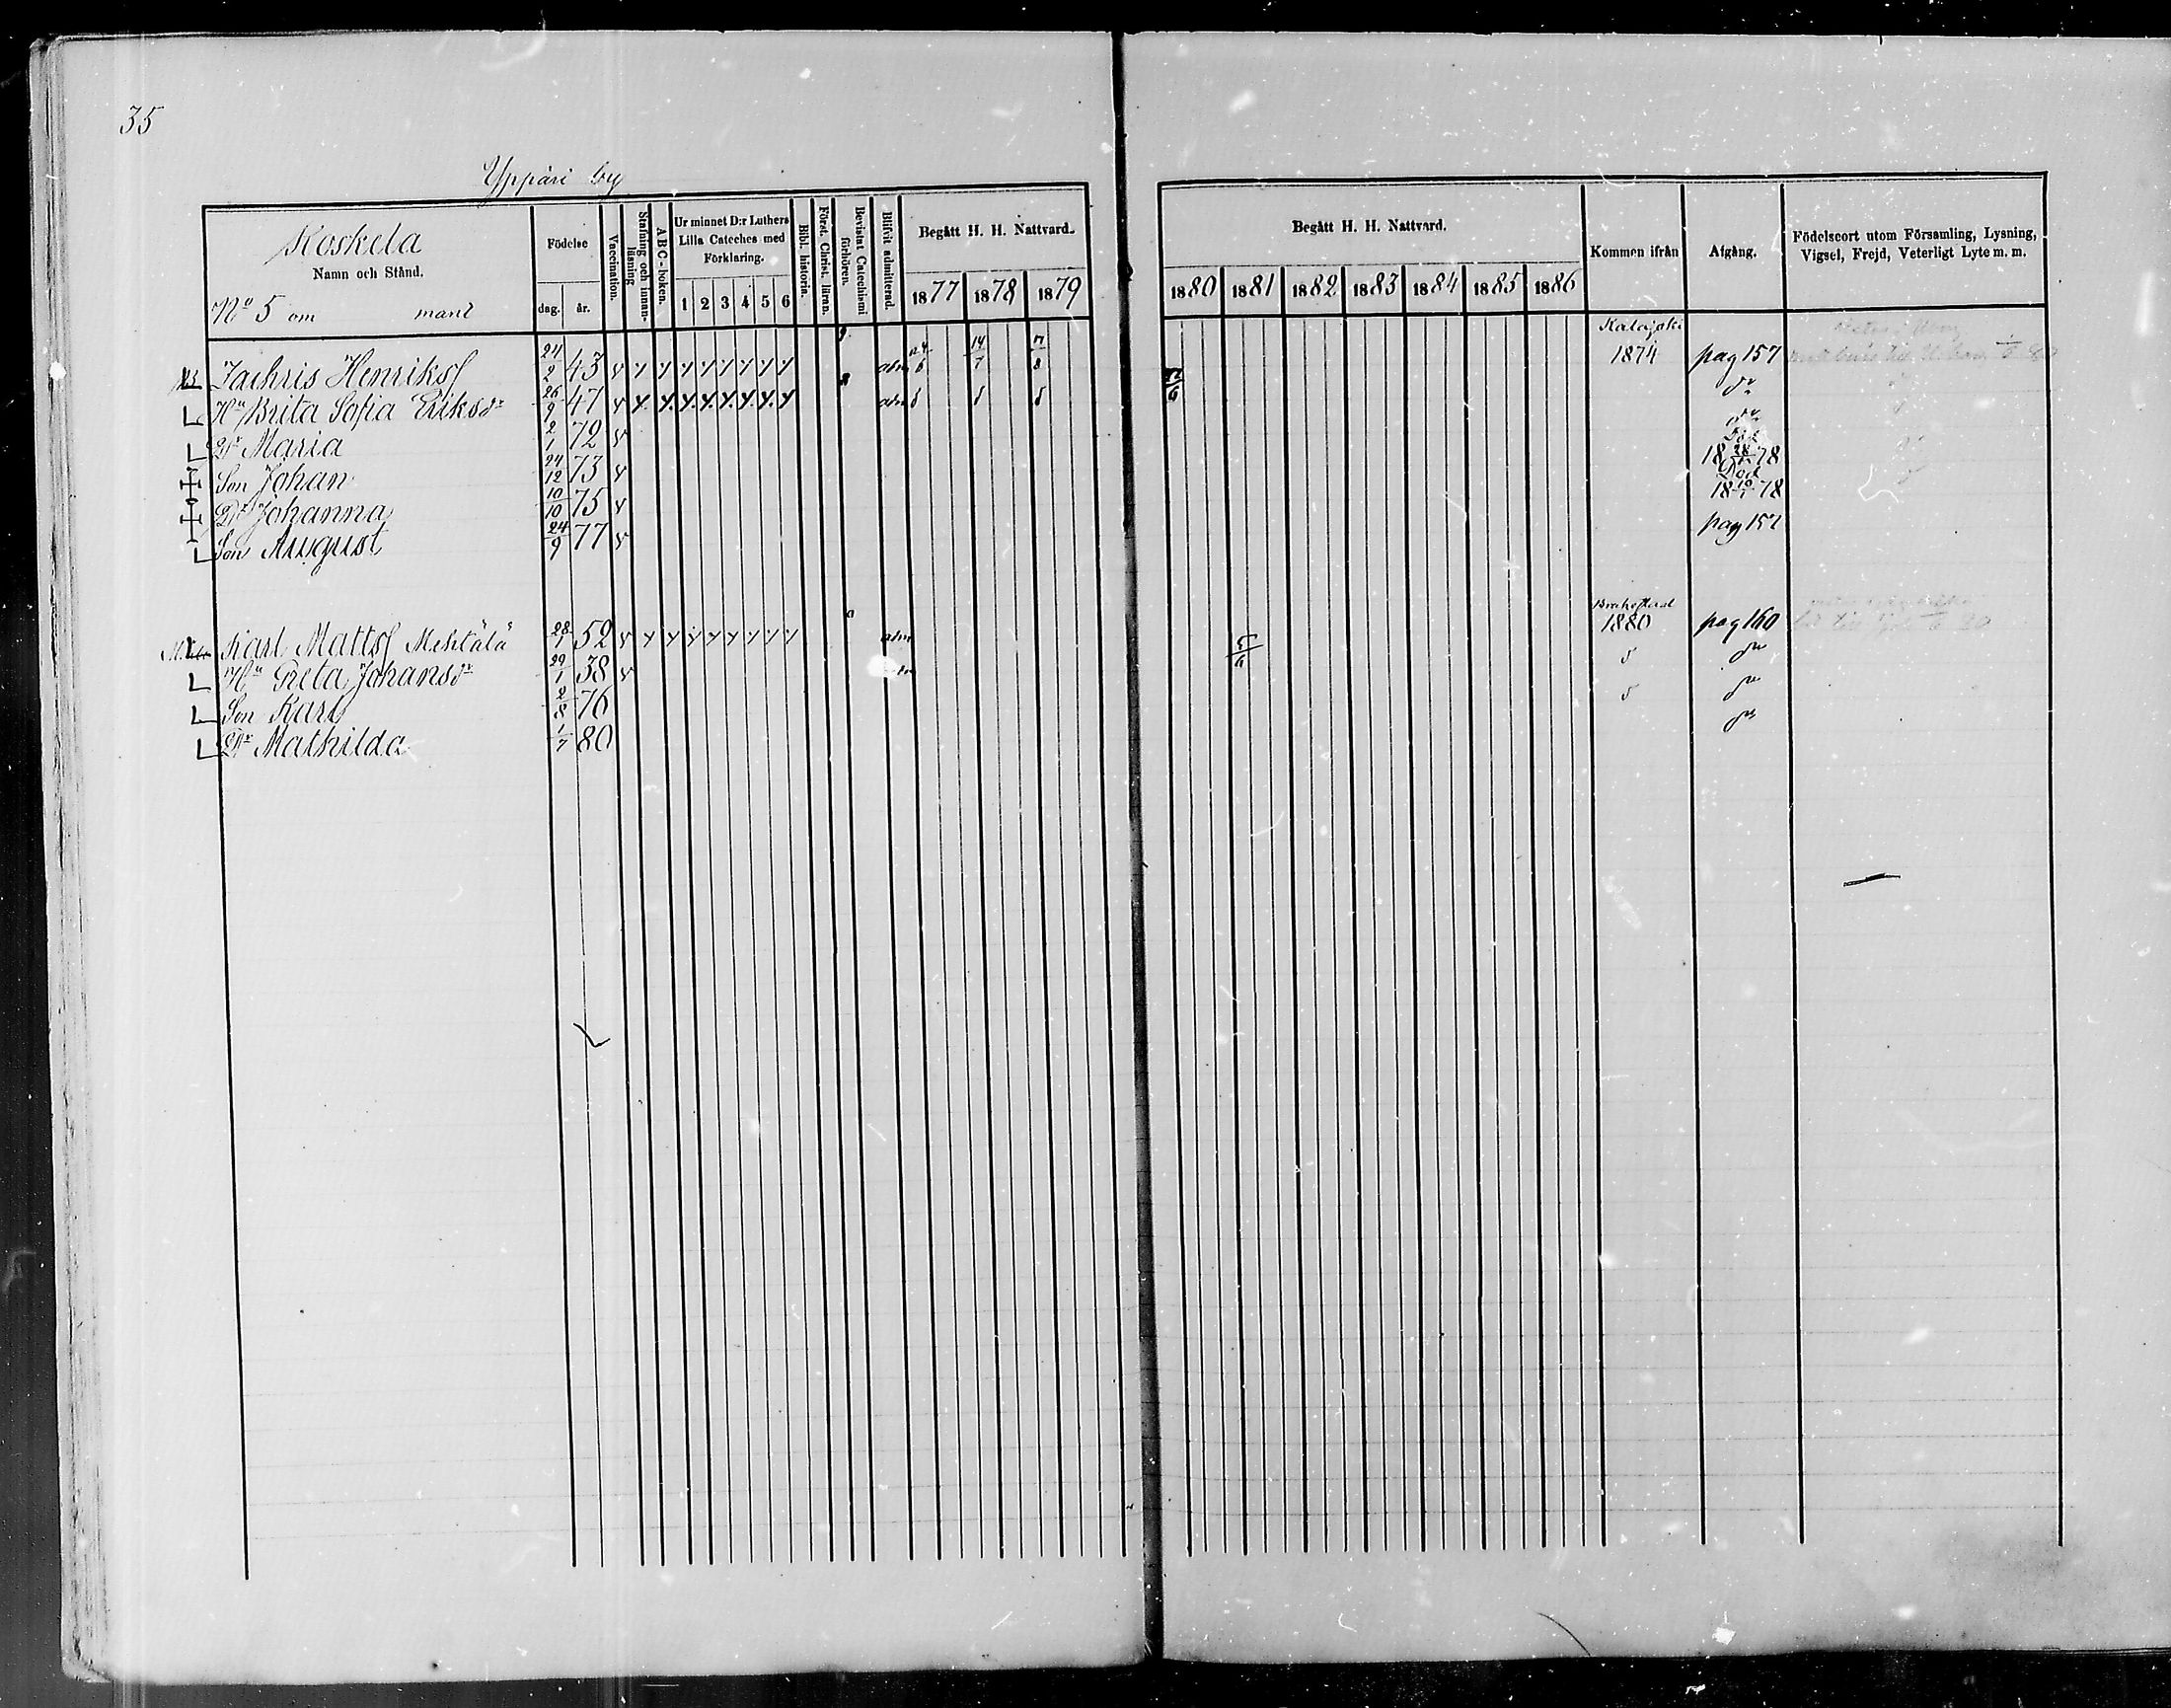 35
Yppäri by
Koskela
Namn och Stånd.
No 5 om mant
Födelse
dag. år.
Vaccination.
Stafning och innan-läsning
ABC-boken.
Ur minnet D:r Luthers Lilla Cateches med Förklaring.
1 2 3 4 5 6
Bibl. historia.
Först. Christ. läran.
Bevistat Catechismi förhören.
Blifvit admitterad.
Begått H. H. Nattvard.
1877 1878 1879
Begått H. H. Nattvard.
1880 1881 1882 1883 1884 1885 1886
Kommen ifrån
Afgång.
Födelseort utom Församling, Lysning, Vigsel, Frejd, Veterligt Lyte m. m.
Zachris Henrikss 24/2 43 v adm 24/6 14/7 17/8 Kalajoki 1874 pag 157
Hu Brita Sofia Eriksdr 26/9 47 v adm d d d do
Dr Maria 2/1 72 v do
Son Johan 24/12 73 v Död 18 28/1 78
Dr Johanna 10/10 75 v Död 18 10/1 78
Son August 24/9 77 v pag 157
Karl Mattss Mehtälä 28/1 52 v adm 5/6 Brahestad 1880 pag 160
Hu Greta Johansdr 29/1 38 v do
Son Karl 2/8 76 do
Dr Mathilda 1/7 80 do